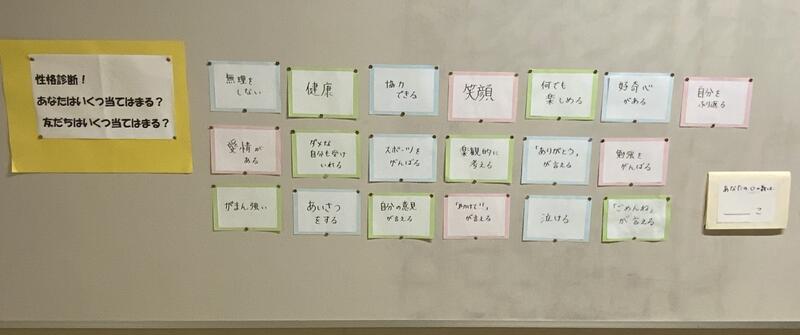 性格診断！
あなたはいくつ当てはまる？
友だちはいくつ当てはまる？
無理を
しない
健康
協力
できる
笑顔
何でも
楽しめる
好奇心
がある
自分を
ふり返る
愛情が
ある
ダメな
自分も受け
いれる
スポーツを
がんばる
楽観的に
考える
「ありがとう」
が言える
勉強を
がんばる
がまん強い
あいさつ
をする
自分の意見
が言える
「たすけて!!」
が言える
泣ける
「ごめんね」
が言える
あなたの○の数は
こ